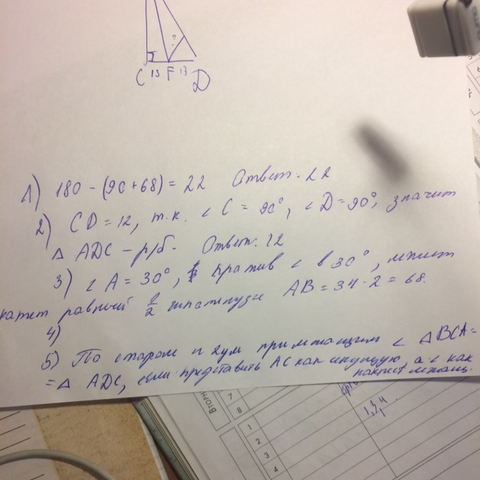 ?
C 13 F 13 D
1) 180 - (90 + 68) = 22 Ответ. 22
2) CD = 12, т.к. ∠C = 90°, ∠D = 90°, значит
△ ADC - р/б. Ответ. 12
3) ∠A = 30°, Против ∠ в 30°, лежит
катет равный 1/2 гипотенузы AB = 34 · 2 = 68.
4)
5) По стороне и 2ум прилежащим ∠ △BCA =
= △ ADC, если представить AC как секущую, а ∠ как
накрест лежащ.
1
2
3
4
7
8